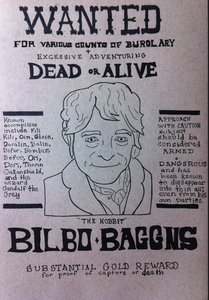 WANTED
FOR VARIOUS COUNTS OF BURGLARY
+
EXCESSIVE ADVENTURING
DEAD OR ALIVE
Known
accomplices
include Fili
Kili, Oin, Gloin,
Dwalin, Balin,
Bifur, Bombur
Bofur, Ori,
Dori, Thorin
Oakenshield,
and the
wizard
Gandalf the
Grey
APPROACH
WITH CAUTION
subject
should be
considered
ARMED
+
DANGEROUS
and has
been known
to disappear
into thin air
even from his
own parties
"THE HOBBIT"
BILBO BAGGINS
SUBSTANTIAL GOLD REWARD
for proof of capture or death